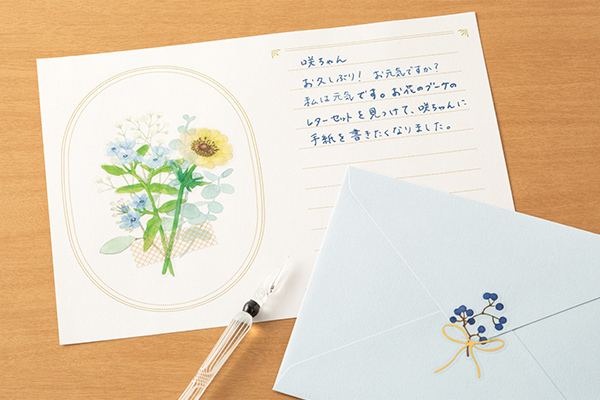 咲ちゃん
お久しぶり! お元気ですか?
私は元気です。お花のブーケの
レターセットを見つけて、咲ちゃんに
手紙を書きたくなりました。